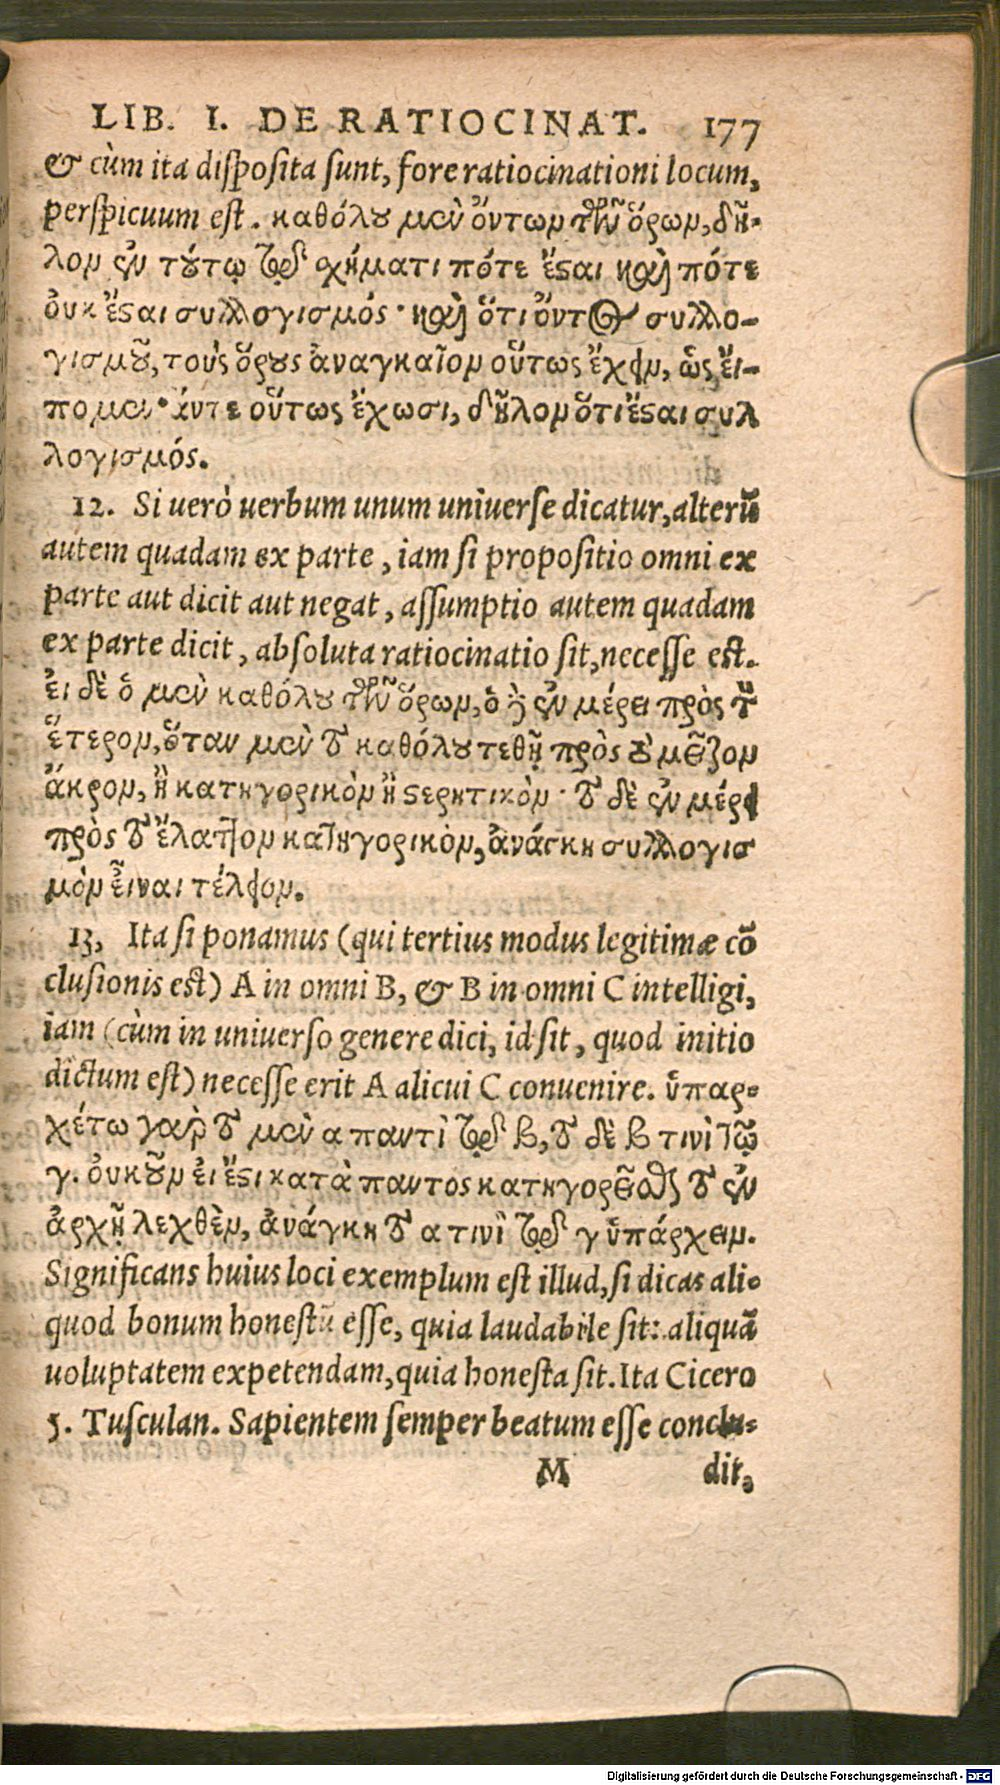 LIB. I. DE RATIOCINAT. 177
& cùm ita disposita sunt, fore ratiocinationi locum,
perspicuum est. καθόλου μὲν ὄντων τῶν ὅρων, δῆ-
λον ἐν τούτῳ τῷ σχήματι πότε ἔσται καὶ πότε
οὐκ ἔσται συλλογισμός· καὶ ὅτι ὄντος συλλο-
γισμοῦ, τοὺς ὅρους ἀναγκαῖον οὕτως ἔχειν, ὡς εἴ-
πομεν· ἄντε οὕτως ἔχωσι, δῆλον ὅτι ἔσται συλ
λογισμός.
12. Si uerò uerbum unum uniuerse dicatur, alterũ
autem quadam ex parte, iam si propositio omni ex
parte aut dicit aut negat, assumptio autem quadam
ex parte dicit, absoluta ratiocinatio sit, necesse est.
εἰ δὲ ὁ μὲν καθόλου τῶν ὅρων, ὁ δὲ ἐν μέρει πρὸς τὸν
ἕτερον, ὅταν μὲν τὸ καθόλου τεθῇ πρὸς τὸ μεῖζον
ἄκρον, ἢ κατηγορικὸν ἢ στερητικὸν· τὸ δὲ ἐν μέρει
πρὸς τὸ ἔλαττον κατηγορικὸν, ἀνάγκη συλλογισ
μὸν εἶναι τέλειον.
13, Ita si ponamus (qui tertius modus legitimæ cõ
clusionis est) A in omni B, & B in omni C intelligi,
iam (cùm in uniuerso genere dici, id sit, quod initio
dictum est) necesse erit A alicui C conuenire. ὑπαρ-
χέτω γὰρ τὸ μὲν α παντὶ τῷ β, τὸ δὲ β τινὶ τῷ
γ. οὐκοῦν εἰ ἔστι κατὰ παντος κατηγορεῖσθαι τὸ ἐν
ἀρχῇ λεχθὲν, ἀνάγκη τὸ α τινὶ τῷ γ ὑπάρχειν.
Significans huius loci exemplum est illud, si dicas ali-
quod bonum honestũ esse, quia laudabile sit: aliquã
uoluptatem expetendam, quia honesta sit. Ita Cicero
5. Tusculan. Sapientem semper beatum esse conclu-
M dit,
Digitalisierung gefördert durch die Deutsche Forschungsgemeinschaft - DFG